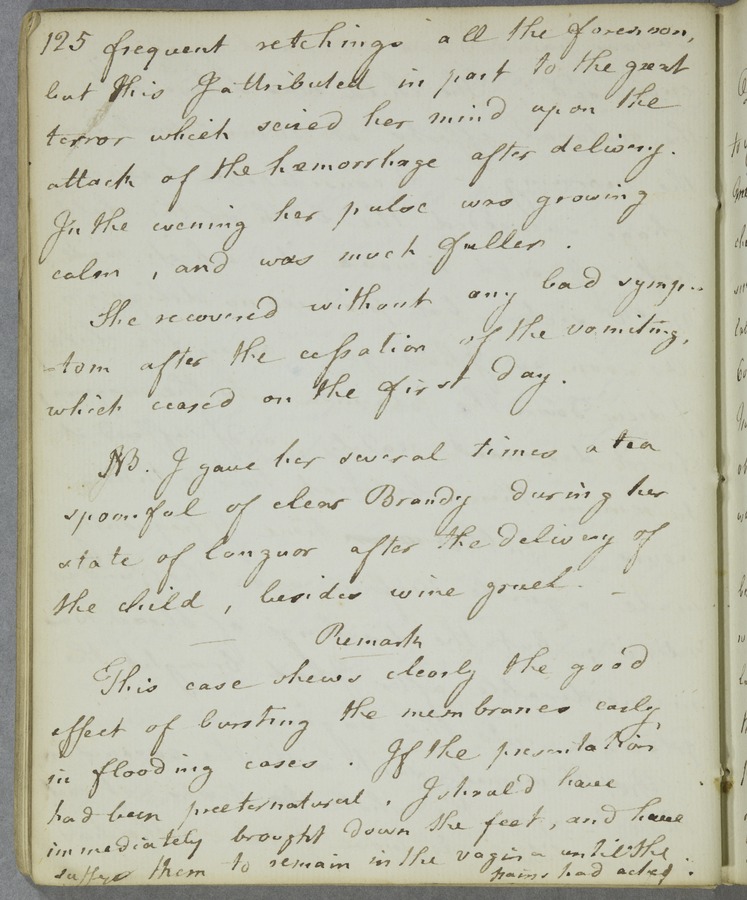 125 frequent retchings all the forenoon,
but this I attributed in part to the great
terror which seized her mind upon the
attack of the hæmorrhage after delivery.
In the evening her pulse was growing
calm, and was much fuller.
She recovered without any bad symp-
-tom after the cessation of the vomiting,
which ceased on the first day.
NB. I gave her several times a tea
spoonful of clear Brandy during her
state of languor after the delivery of
the child, besides wine gruel. -
Remark
This case shews clearly the good
effect of bursting the membranes early,
in flooding cases. If the presentation
had been preternatural, I should have
immediately brought down the feet, and have
suffer them to remain in the vagina until the
pains had acted.